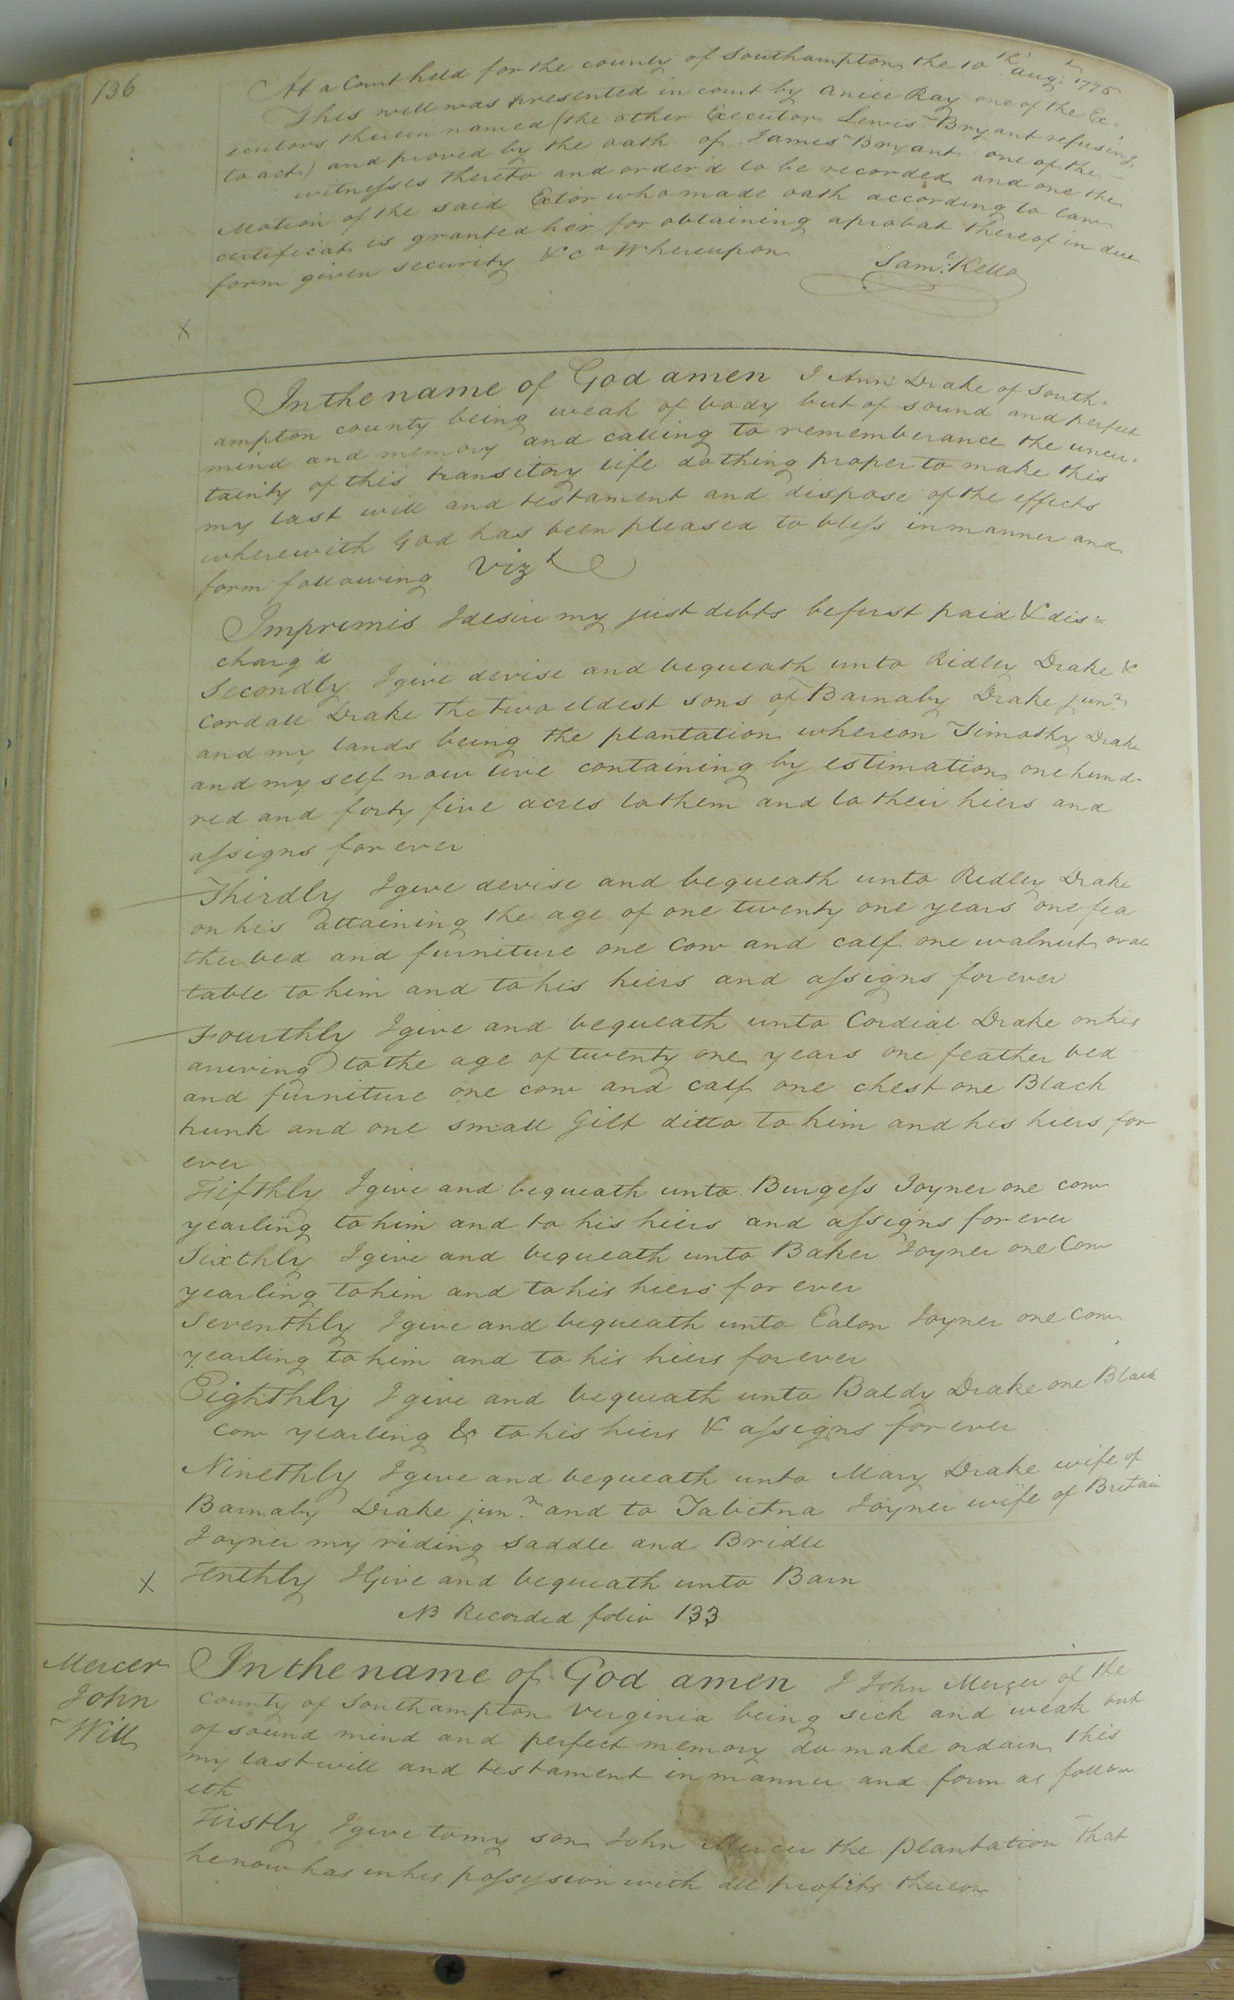 136
At a Court held for the county of Southampton the 10th Augt 1775
This will was presented in court by Anice Ray one of the Ex-
ecutors therein named (the other Executor Lewis Bryant refusing
to act) and proved by the oath of James Bryant one of the
witnesses thereto and order'd to be recorded and one the
Motion of the said Extor who made oath according to law
certificat is granted her for obtaining a probat thereof in due
form given security &ca Whereupon Saml Kello
X
In the name of God amen I Ann Drake of South-
ampton county being weak of body but of sound and perfect
mind and memory and calling to rememberance the uncer-
tainty of this transitory life do thing proper to make this
my last will and testament and dispose of the effects
wherewith God has been pleased to bless in manner and
form following Vizt
Impremis I desire my just debts be first paid & dis=
charg'd
Secondly I give devise and bequeath unto Ridley Drake &
Cordall Drake the two eldest sons of Barnaby Drake junr
and my lands being the plantation whereon Timothy Drake
and my self now live containing by estimation one hund-
red and forty five acres to them and to their hiers and
assigns for ever
Thirdly I give devise and bequeath unto Ridley Drake
on his attaining the age of one twenty one years one fea
ther bed and furniture one cow and calf one walnut oval
table to him and to his hiers and assigns forever
Fourthly I give and bequeath unto Cordial Drake on his
arriving to the age of twenty one years one feather bed
and furniture one cow and calf one chest one Black
trunk and one small Gilt ditto to him and his hiers for
ever
Fiifthly I give and bequeath unto Burgess Joyner one cow
yearling to him and to his hiers and assigns for ever
Sixthly I give and bequeath unto Baker Joyner one Cow
yearling to him and to his hiers for ever
Seventhly I give and bequeath unto Eaton Joyner one Cow
yearling to him and to his hiers forever
Eighthly I give and bequeath unto Baldy Drake one Black
Cow yearling & to his hiers & assigns forever
Ninethly I give and bequeath unto Mary Drake wife of
Barnaby Drake junr and to Tabietha Joyner wife of Britain
Joyner my riding saddle and Bridle
X Tenthly I Give and bequeath unto Barn
NB Recorded folio 133
Mercer
John
Will
In the name of God amen I John Mercer of the
County of Southampton Verginia being sick and weak but
of sound mind and perfect memory do make ordain this
my last will and testament in manner and form as follow
eth
Firstly I give to my son John Mercer the plantation that
he now has in his possession with all profits thereon